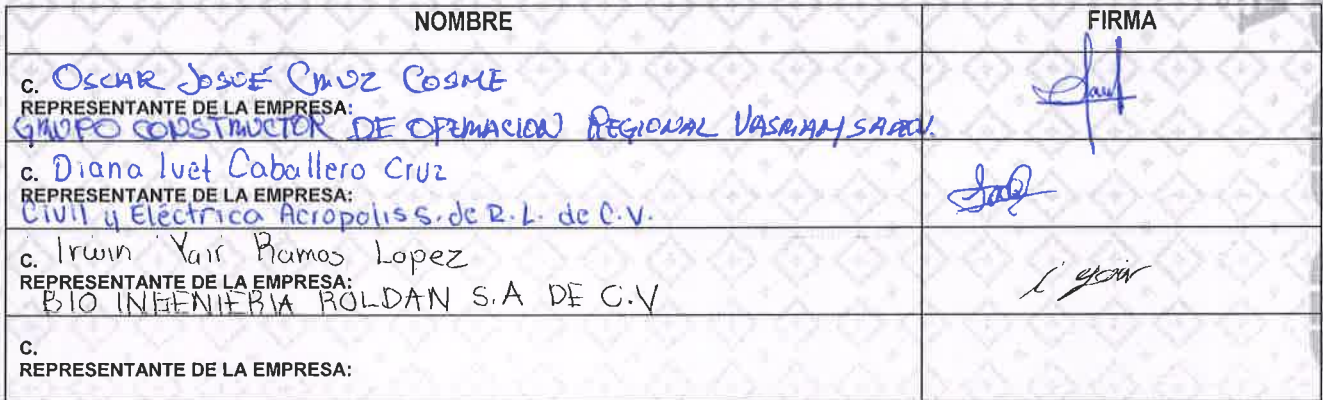 NOMBRE FIRMA
C. OSCAR JOSUÉ CRUZ COSME
REPRESENTANTE DE LA EMPRESA:
GRUPO CONSTRUCTOR DE OPERACION REGIONAL
C. Diana Ivet Caballero Cruz
REPRESENTANTE DE LA EMPRESA:
Civil y Eléctrica Acropolis S. de R.L. de C.V.
C. Irwin Yair Ramos Lopez
REPRESENTANTE DE LA EMPRESA:
BIO INGENIERIA ROLDAN S.A DE C.V
i yair
C.
REPRESENTANTE DE LA EMPRESA: